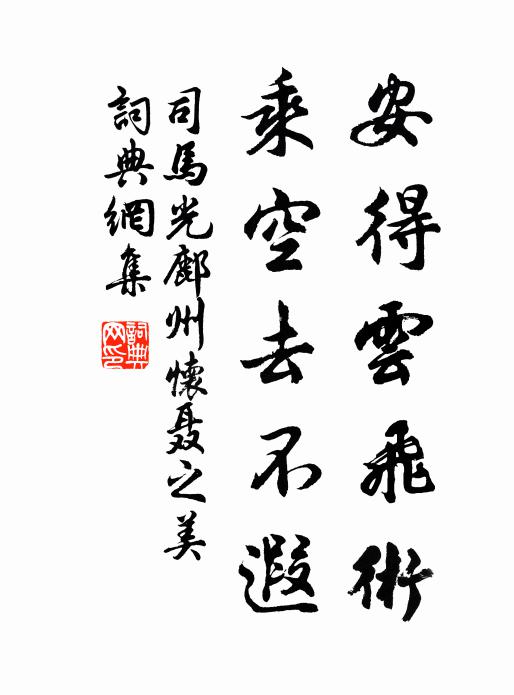 安得雲飛術
乘空去不遐
司馬光鄜州懷聶之美
詞典網集
詞典網印